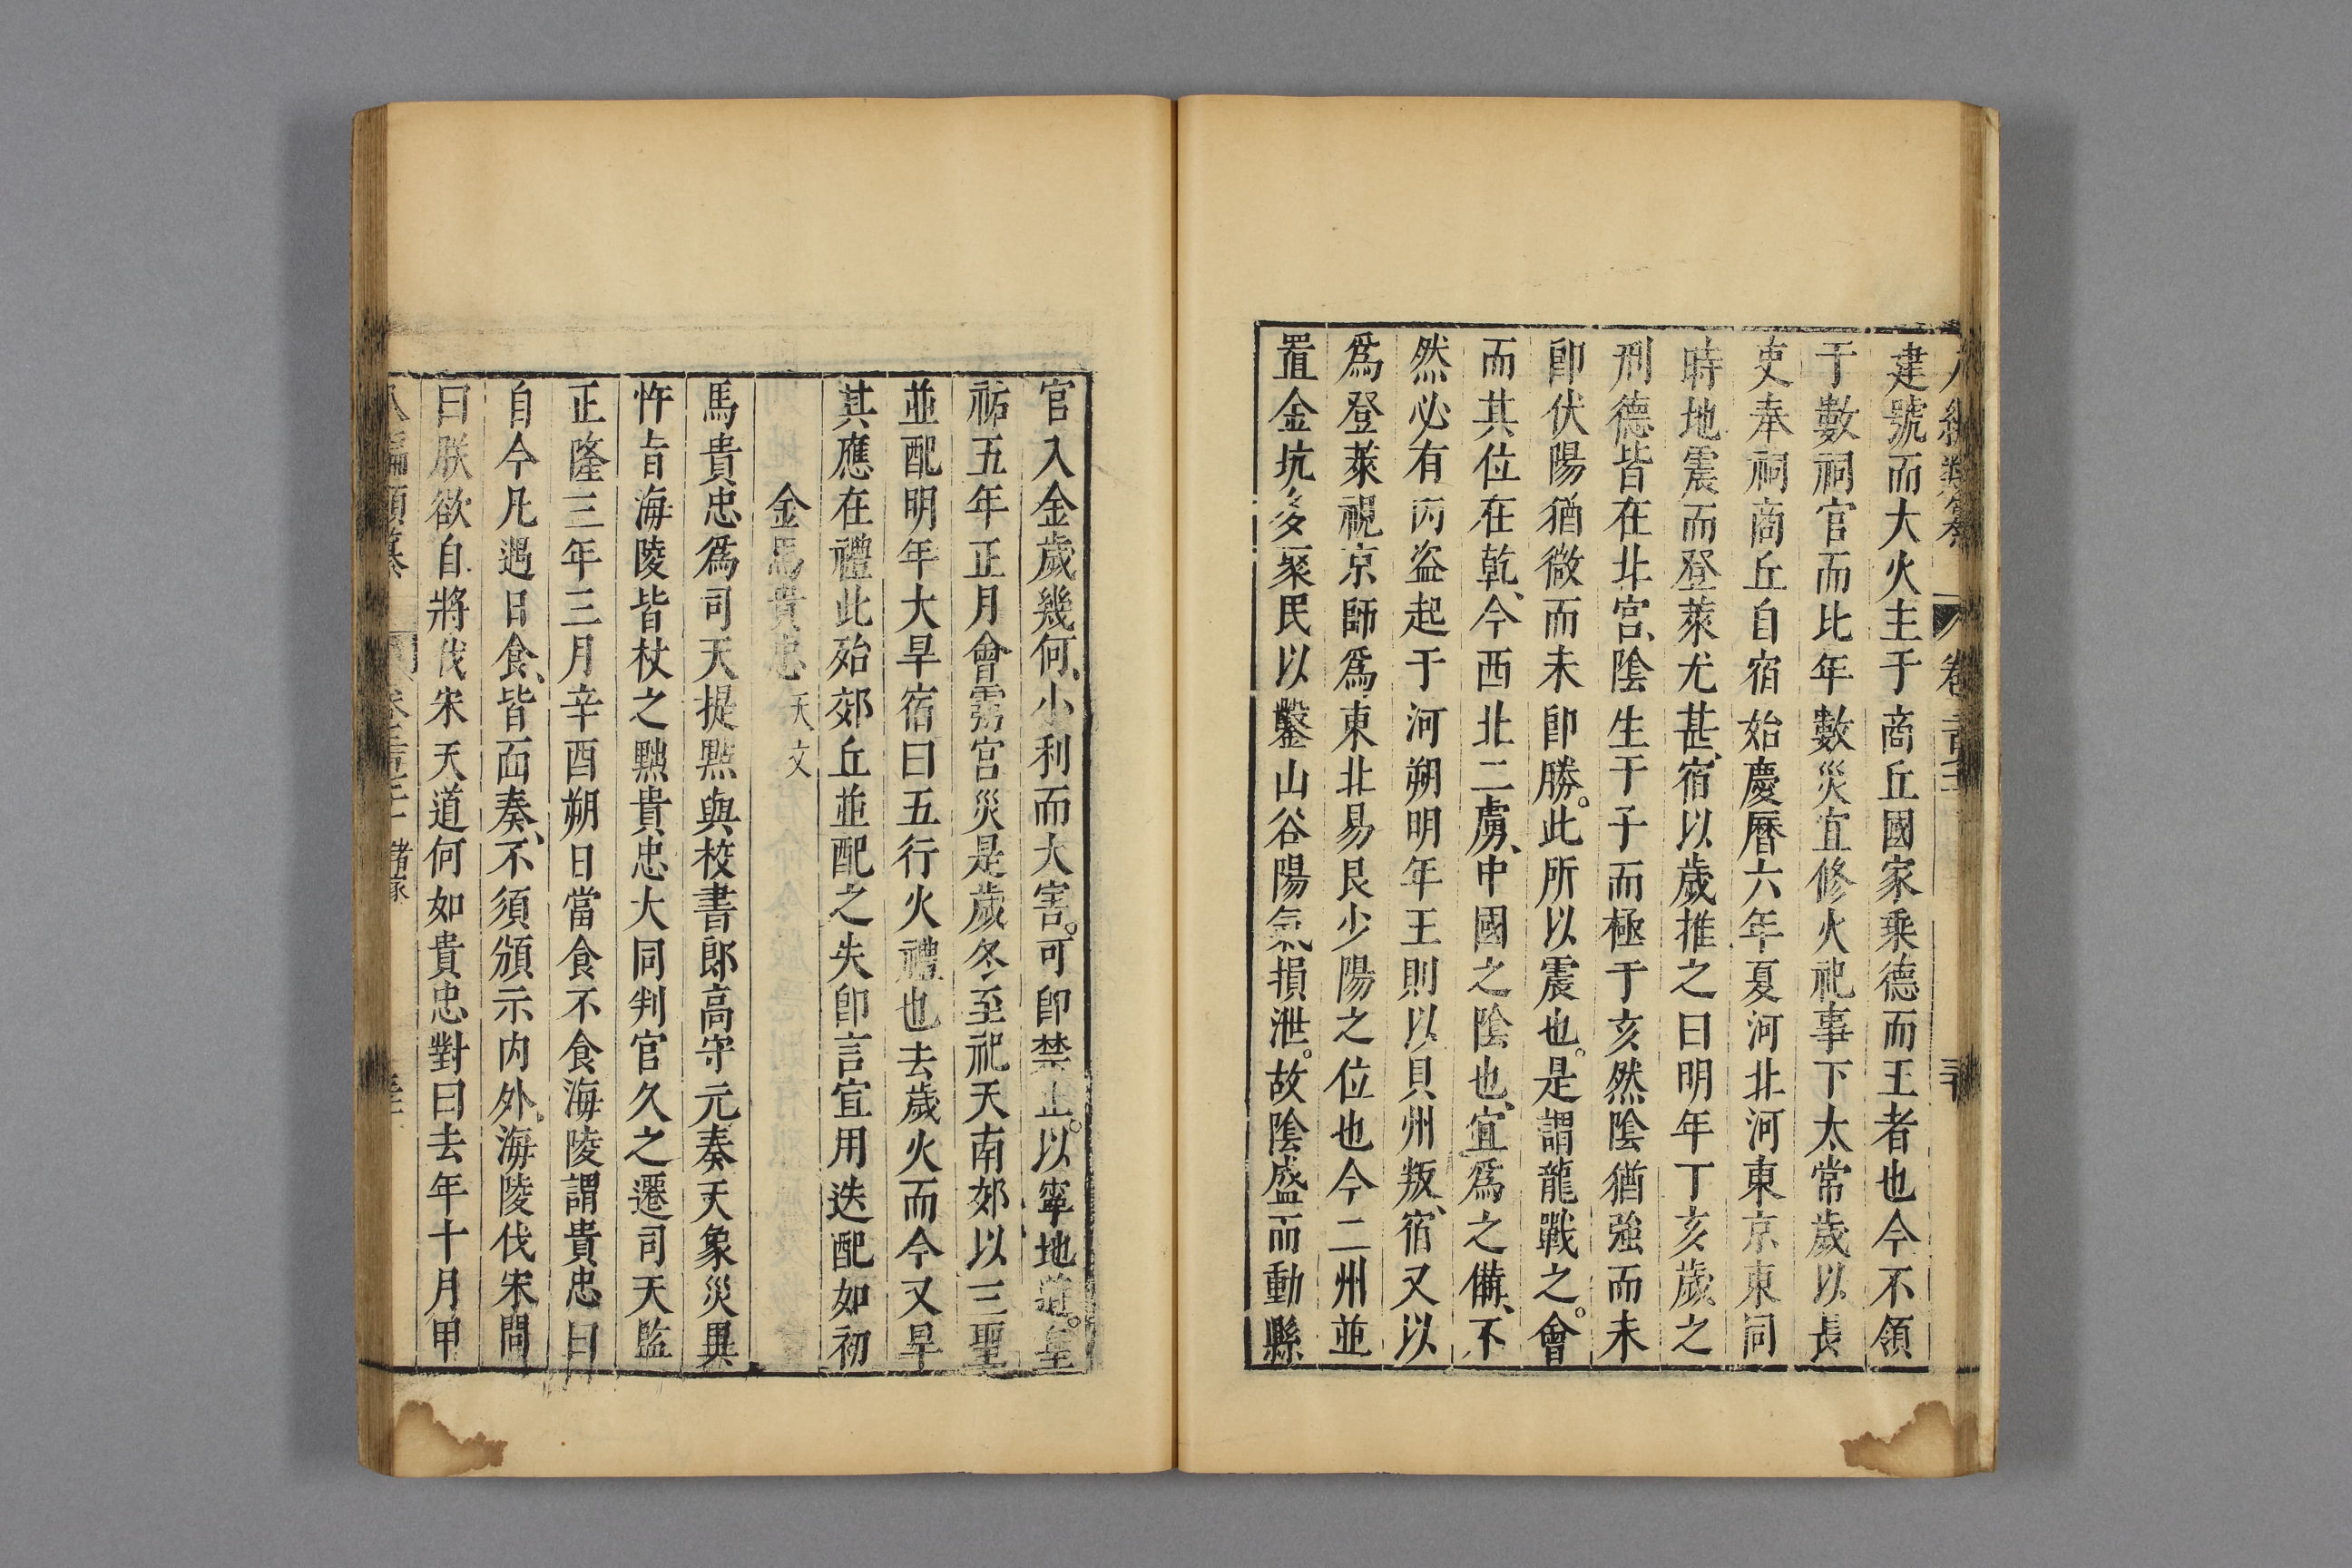 建號而大火主于商丘國家乘德而王者也今不領
于數祠官而比年數災宜修火祀事下太常歲以長
吏奉祠商丘自宿始慶曆六年夏河北河東京東同
時地震而登萊尤甚、宿以歲推之曰明年丁亥歲之
刑德皆在北宮、陰生于子而極于亥然陰猶強而未
卽伏陽猶微而未卽勝。此所以震也。是謂龍戰之。會
而其位在乾、今西北二虜、中國之陰也、宜爲之備、不
然必有丙盜起于河朔明年王則以貝州叛、宿又以
爲登萊視京師爲東北易艮少陽之位也今二州並
置金坑多聚民以鑿山谷陽氣損泄。故陰盛而動縣
官入金歲幾何、小利而大害。可卽禁止。以寧地道。皇
祐五年正月會霛宮災是歲冬至祀天南郊以三聖
並配明年大旱宿曰五行火禮也去歲火而今又旱
其應在禮此殆郊丘並配之失卽言宜用迭配如初
金馬貴忠 天文
馬貴忠爲司天提點與校書郎高守元奏天象災異
忤旨海陵皆杖之黜貴忠大同判官久之遷司天監
正隆三年三月辛酉朔日當食不食海陵謂貴忠曰
自今凡遇日食、皆面奏、不須頒示内外。海陵伐宋問
曰朕欲自將伐宋天道何如貴忠對曰去年十月甲